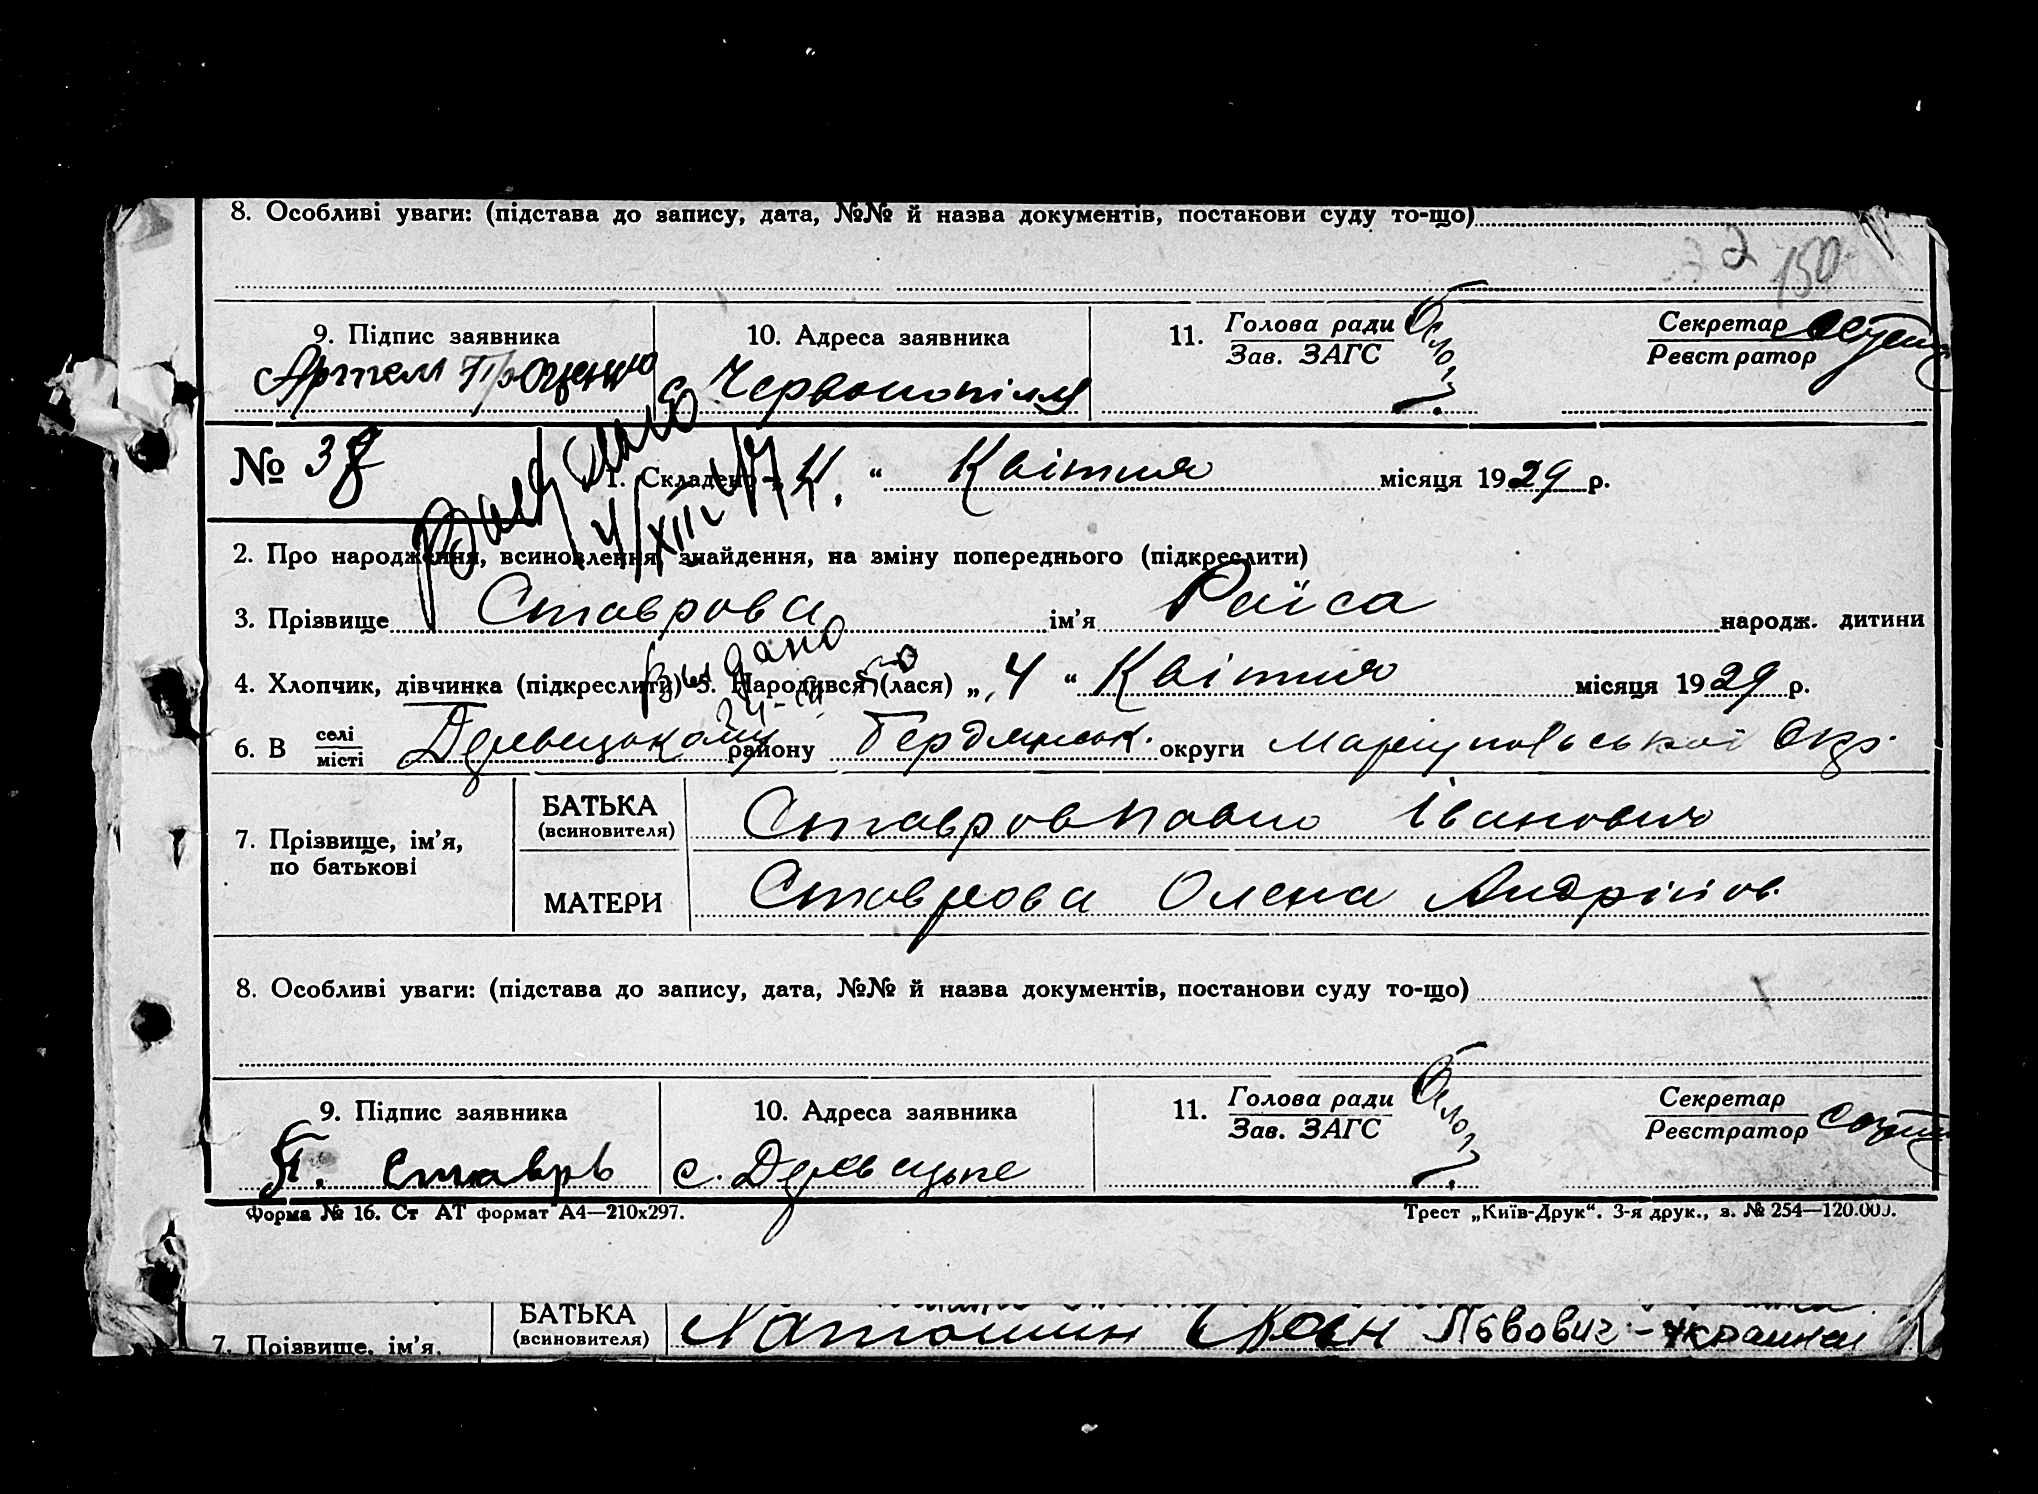 8. Особливі уваги: (підстава до запису, дата, №№ й назва документів, постанови суду то-що)
150
9. Підпис заявника
10. Адреса заявника
11. Голова ради
Зав. ЗАГС
Секретар
Реєстратор
Артем Проценко
с Червонопілля
№ 38
1. Складено „ 4. “ Квітня місяця 1929 р.
2. Про народження, всиновлення, знайдення, на зміну попереднього (підкреслити)
3. Прізвище Ставрова ім’я Раїса народж. дитини
видано
4. Хлопчик, дівчинка (підкреслити) 5. Народився (лася) „ 4 “ Квітня місяця 1929 р.
6. В селі
місті
району Бердянськ. округи Маріупольської Окр.
7. Прізвище, ім’я,
по батькові
БАТЬКА
(всиновителя)
Ставров Павло Іванович
МАТЕРИ
Ставрова Олена Андріїов.
8. Особливі уваги: (підстава до запису, дата, №№ й назва документів, постанови суду то-що)
9. Підпис заявника
10. Адреса заявника
11. Голова ради
Зав. ЗАГС
Секретар
Реєстратор
П. Ставрв
с.
Форма № 16. Ст АТ формат А4—210х297.
Трест „Київ-Друк“. 3-я друк., з. № 254—120.000.
7. Прізвище, ім’я,
БАТЬКА
(всиновителя)
Львович -